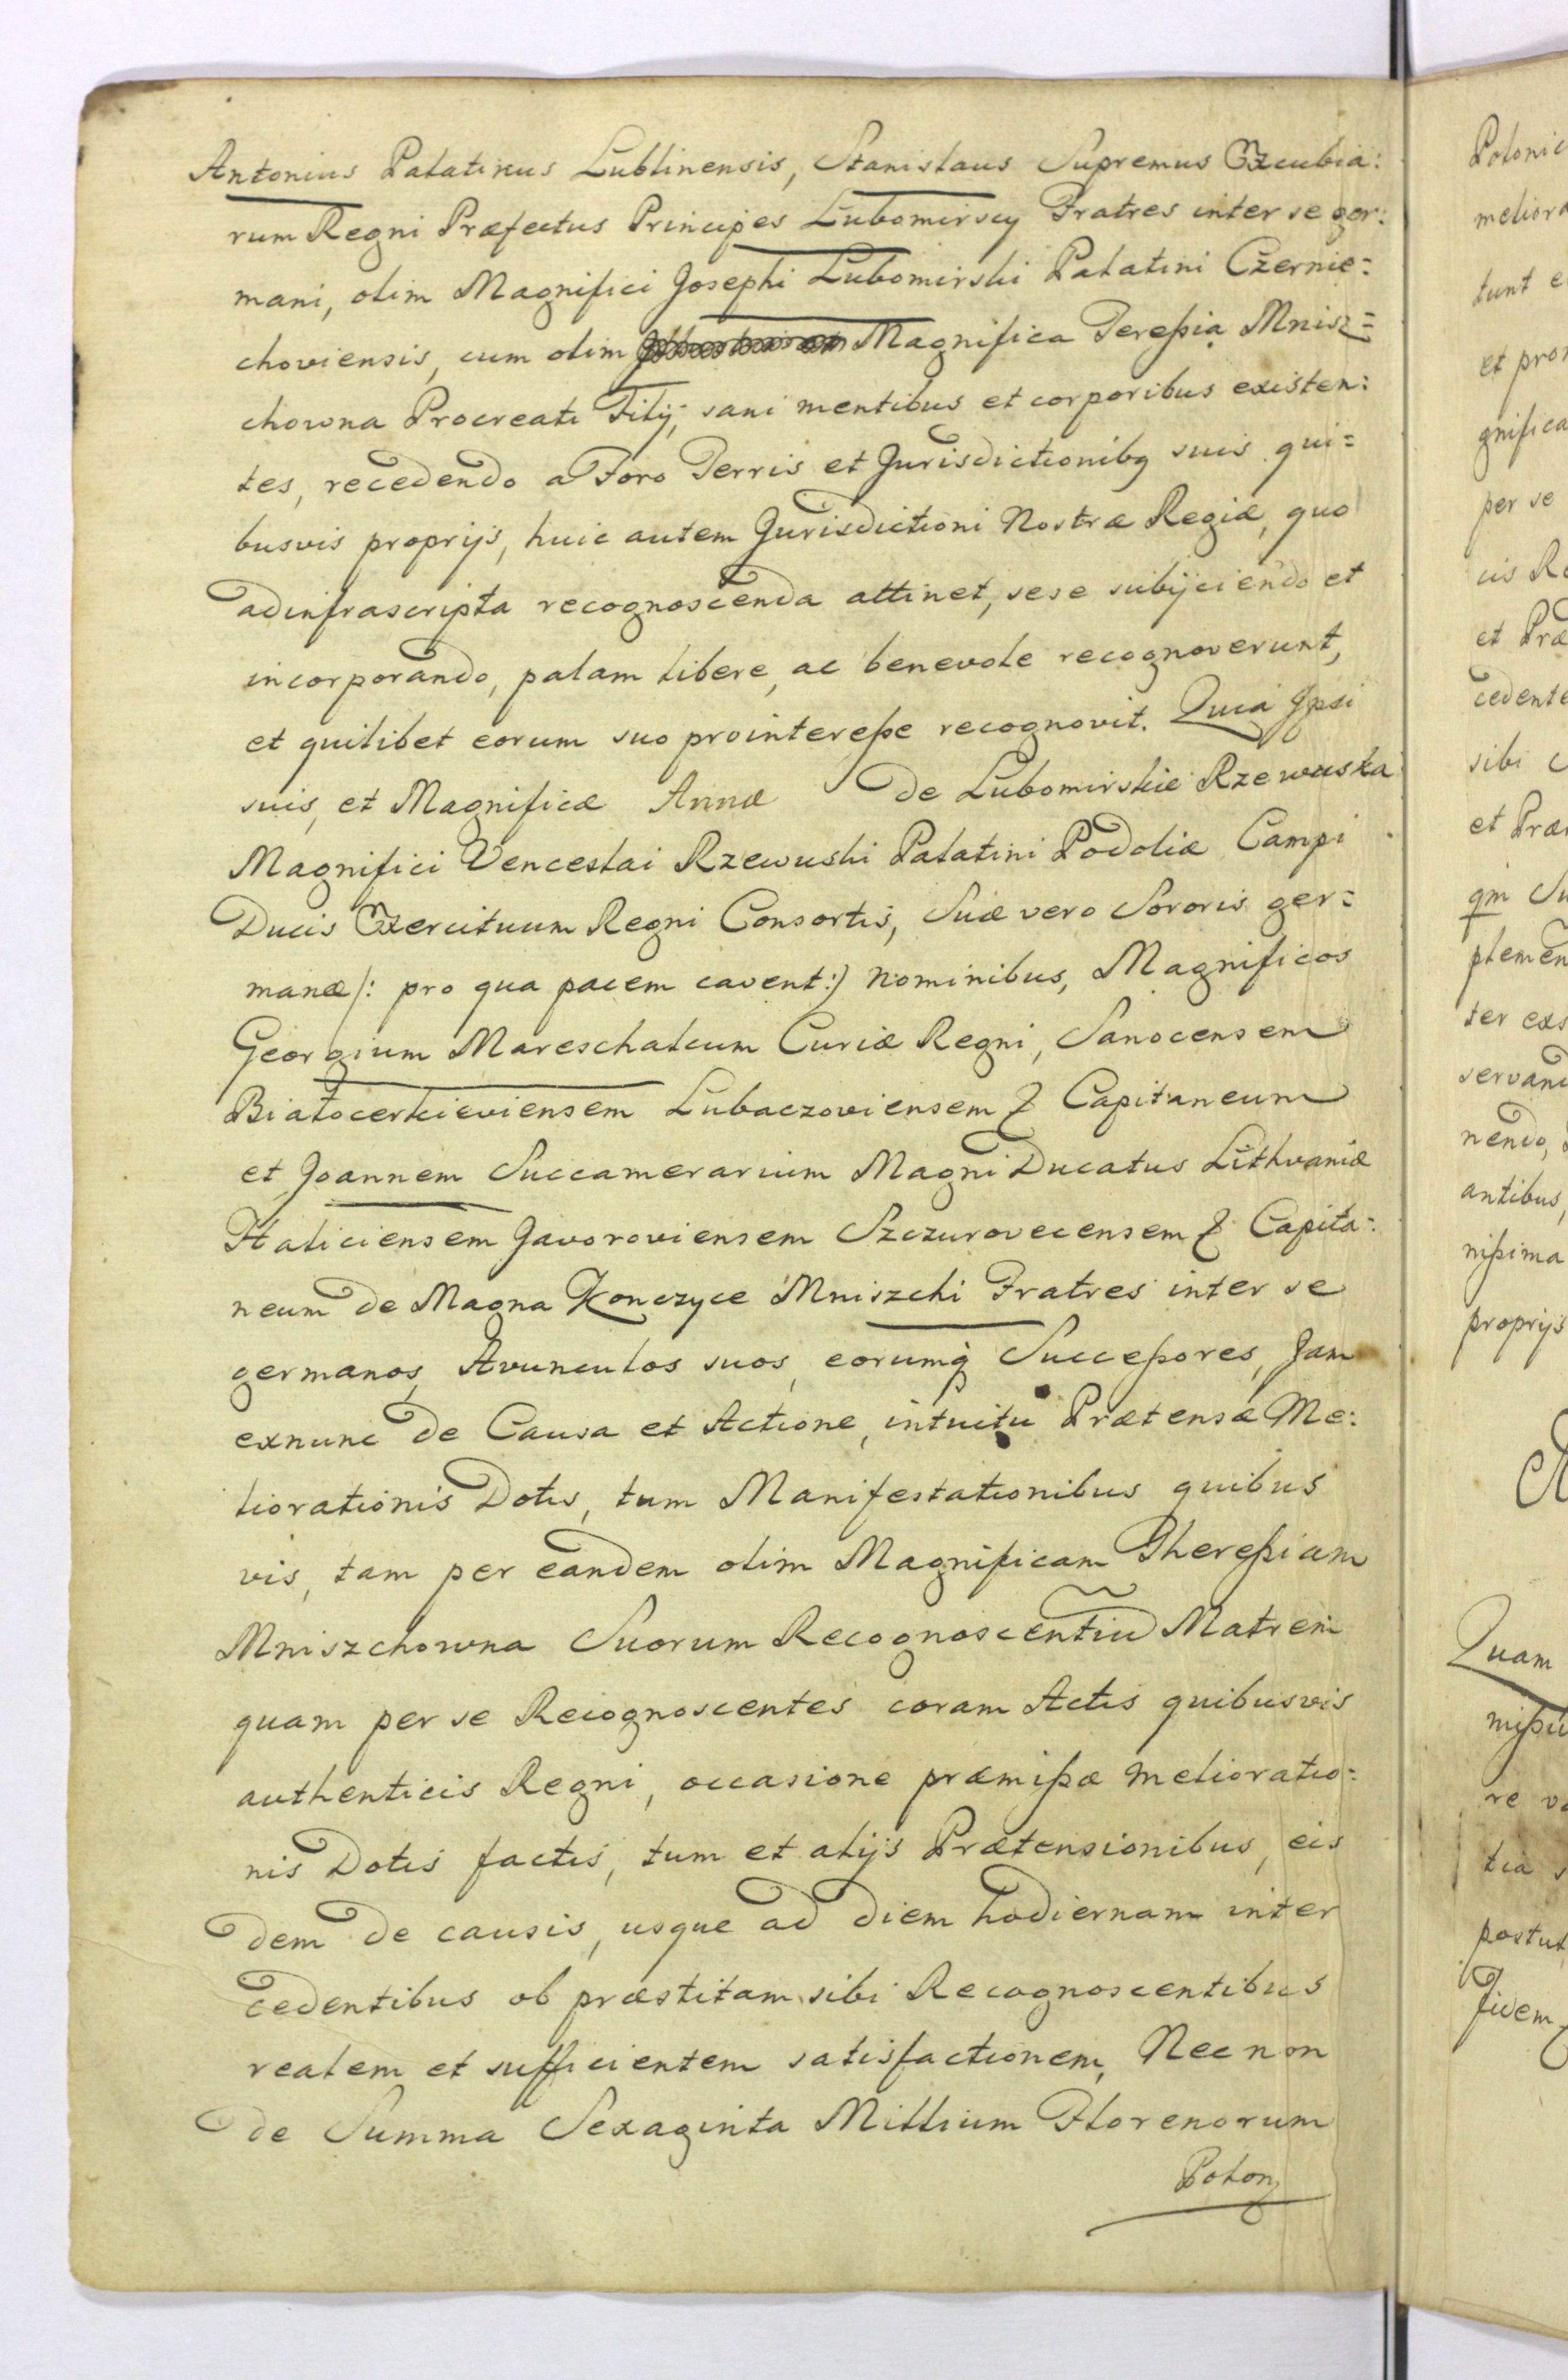 Antonius Palatinus Lublinensis, Stanislaus Supremus Excubia:
rum Regni Præfectus Principes Lubomirscy Fratres inter se ger:
mani, olim Magnifici Josephi Lubomirski Palatini Czernie=
choviensis, cum olim Magnifica Tereßia Mnisz=
chowna Procreati Filij, sani mentibus et corporibus existen:
tes, recedendo a Foro Terris et Jurisdictionibq suis qui=
busvis proprijs, huic autem Jurisdictioni Nostræ Regiæ, quo
adinfrascripta recognoscenda attinet, sese subijciendo et
incorporando, palam libere, ac benevole recognoverunt,
et quilibet eorum suo prointereße recognovit. Quia Ipsi
suis, et Magnificæ Annæ de Lubomirskie Rzewuska
Magnifici Venceslai Rzewuski Palatini Podoliæ Campi
Ducis Exercituum Regni Consortis, Suæ vero Sororis ger=
manæ /: pro qua pacem cavent :/ Nominibus, Magnificos
Georgium Mareschalcum Curiæ Regni, Sanocensem
Białocerkieviensem Lubaczoviensem & Capitaneum
et Joannem Succamerarium Magni Ducatus Lithvaniæ
Haliciensem Javoroviensem Szczurovecensem & Capita:
neum de Magna Konczyce Mniszchi Fratres inter se
germanos, Avunculos suos, eorumq Succeßores, Jam
exnunc de Causa et Actione, intuitu Prætensæ Me:
liorationis Dotis, tum Manifestationibus quibus
vis, tam per eandem olim Magnificam Thereßiam
Mniszchowna Suorum Recognoscentiũ Matrem
quam per se Recognoscentes coram Actis quibusvis
authenticis Regni, occasione præmißæ melioratio=
nis Dotis factis, tum et alijs Prætensionibus, eis
dem de causis, usque ad diem hodiernam inter
cedentibus ob præstitam sibi Recognoscentibus
realem et sufficientem satisfactionem, Nec non
de Summa Sexaginta Millium Florenorum
Polon
Polonic
meliora
tunt e
et pro
gnifica
per se
cis Re
et Præ
cedente
sibi
et Præ
qm Su
plemen
ter exs
servand
nendo,
antibus,
nißima
proprijs
Quam
re
tia
postul
fidem